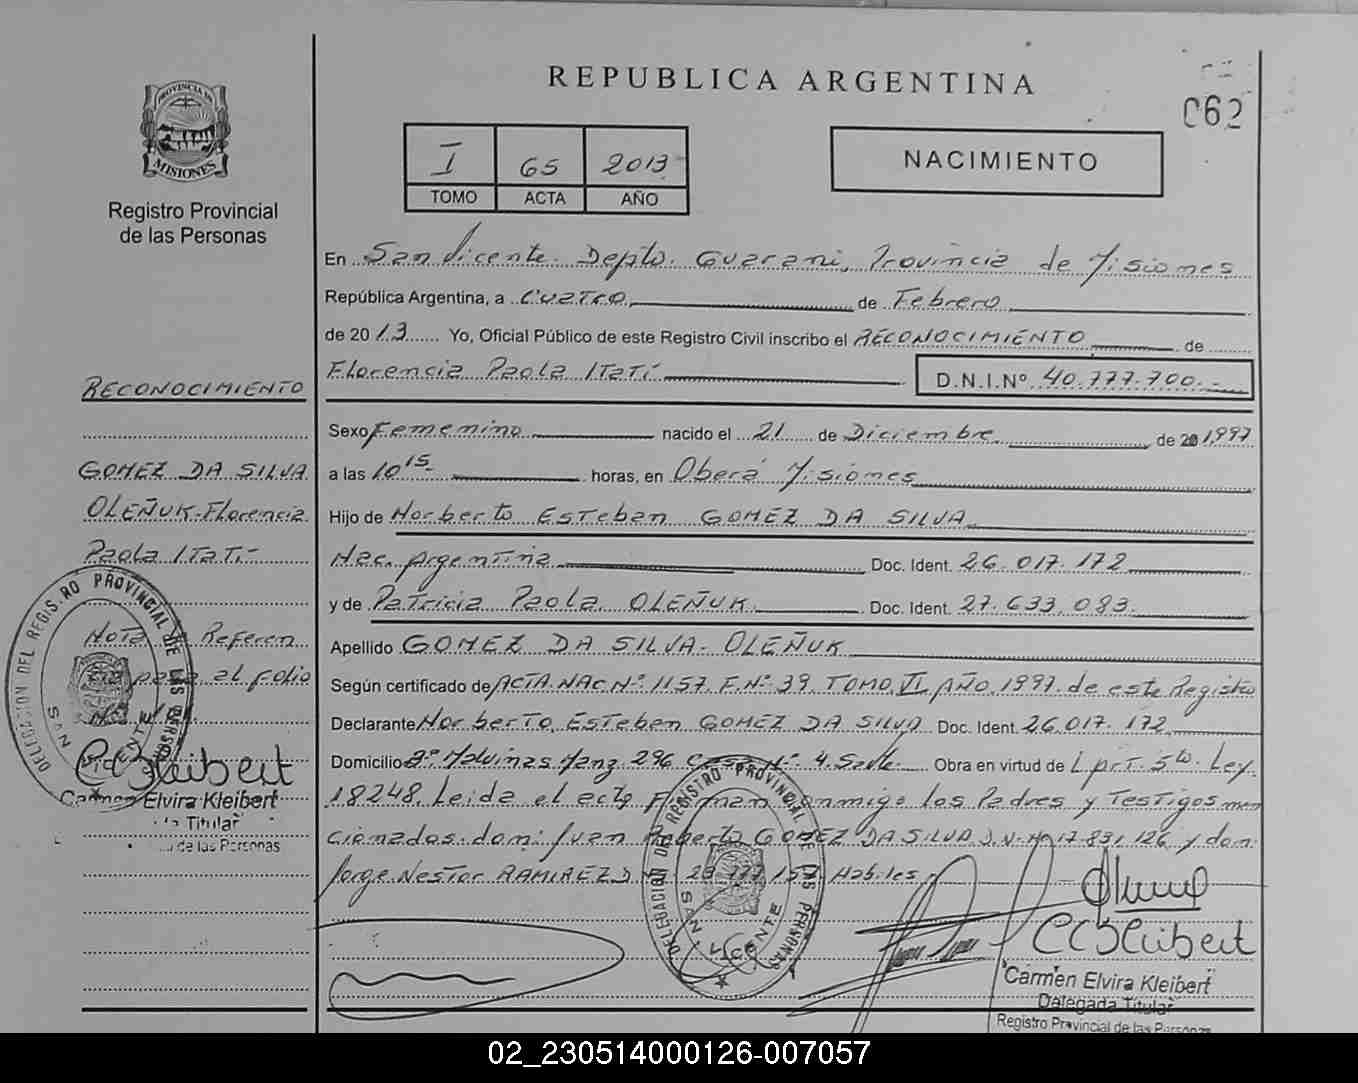 REPUBLICA ARGENTINA
062
PROVINCIA DE
MISIONES
Registro Provincial
de las Personas
I 65 2013
TOMO ACTA AÑO
NACIMIENTO
En San Vicente Depto. Guarani, Provincia de Misiones
República Argentina, a Cuatro de Febrero
de 2013 Yo, Oficial Público de este Registro Civil inscribo el RECONOCIMIENTO de
Florencia Paola Itatí D.N.I.Nº 40.777.700.-
Sexo Femenino nacido el 21 de Diciembre de 20 1997
a las 10 15 horas, en Oberá Misiones
Hijo de Norberto Esteban GOMEZ DA SILVA
Nac. Argentina Doc. Ident. 26.017.172
y de Patricia Paola OLEÑUK Doc. Ident. 27.633.083
Apellido GOMEZ DA SILVA - OLEÑUK
Según certificado de ACTA NAC Nº 1157 F. Nº 39 TOMO VI AÑO 1997 de este Registro
Declarante Norberto Esteban GOMEZ DA SILVA Doc. Ident. 26.017.172
Domicilio Bº Malvinas Manz 296 Casa Nº 4 Obra en virtud de L prt. 5to. Ley
18248. Leida el acta Firman conmigo los Padres y Testigos men
cionados don: Juan Roberto GOMEZ DA SILVA D.N. Nº 17.831.126 y don
Jorge Nestor RAMIREZ Habiles
RECONOCIMIENTO
GOMEZ DA SILVA
OLEÑUK - Florencia
Paola Itatí-
Nota Referen
cia pasa al folio
DELEGACION DEL REGISTRO PROVINCIAL DE LAS PERSONAS
SAN VICENTE
CEKleibert
Carmen Elvira Kleibert
Titular
de las Personas
DELEGACION DEL REGISTRO PROVINCIAL DE LAS PERSONAS
SAN VICENTE
CEKleibert
Carmen Elvira Kleibert
Delegada Titular
Registro Provincial de las Personas
02_230514000126-007057